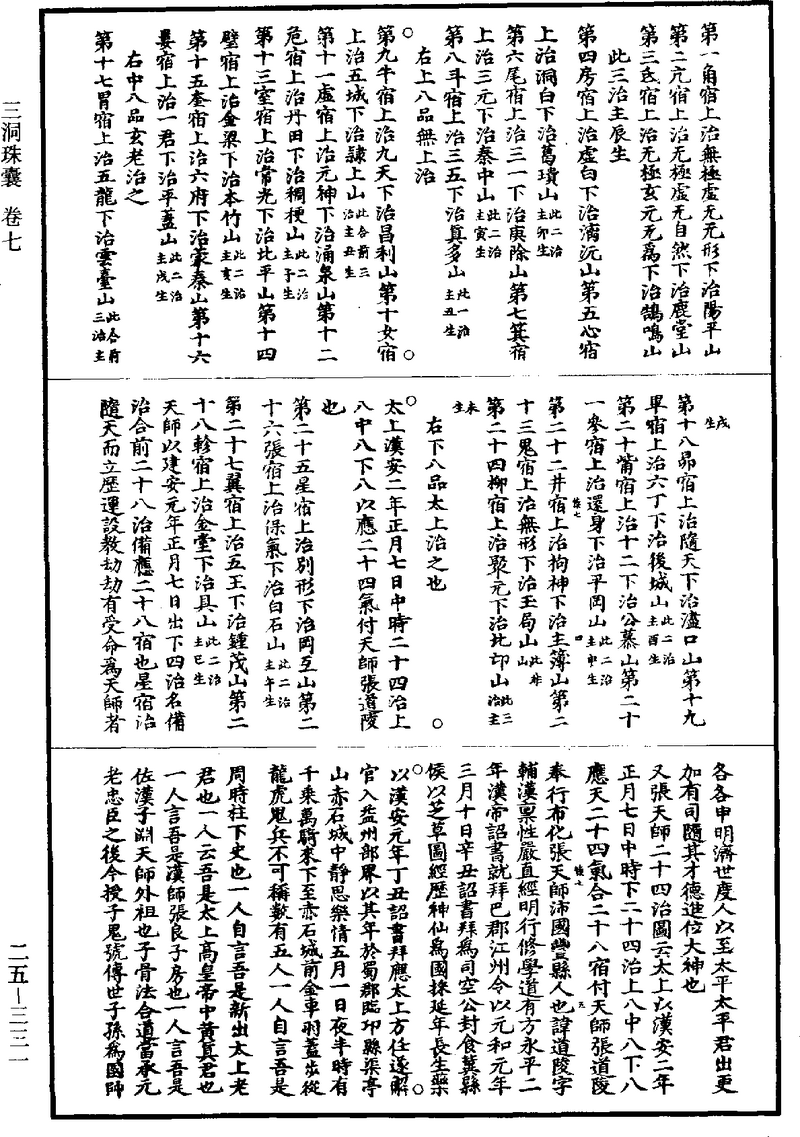 第一角宿上治無極虛无无形下治陽平山
第二亢宿上治无極虛无自然下治鹿堂山
第三氐宿上治无極玄元无為下治鶴鳴山
此三治主辰生
第四房宿上治虛白下治漓沅山第五心宿
上治洞白下治葛璝山此二治主卯生
第六尾宿上治三一下治庚除山第七箕宿
上治三元下治秦中山此二治主寅生
第八斗宿上治三五下治真多山此一治主丑生
右上八品無上治
第九牛宿上治九天下治昌利山第十女宿
上治五城下治隷上山此各前三治主丑生
第十一虛宿上治元神下治涌泉山第十二
危宿上治丹田下治稠梗山此二治主子生
第十三室宿上治常光下治北平山第十四
壁宿上治金梁下治本竹山此二治主亥生
第十五奎宿上治六府下治蒙秦山第十六
婁宿上治一君下治平蓋山此二治主戌生
右中八品玄老治之
第十七胃宿上治五龍下治雲臺山此合前三治主
戌生
第十八昴宿上治隨天下治濜口山第十九
畢宿上治六丁下治後城山此二治主酉生
第二十觜宿上治十二下治公慕山第二十
一參宿上治還身下治平岡山此二治主申生
第二十二井宿上治拘神下治主簿山第二
十三鬼宿上治無形下治玉局山
第二十四柳宿上治聚元下治北邙山此三治主
未生
右下八品太上治之也
太上漢安二年正月七日中時二十四治上
八中八下八以應二十四氣付天師張道陵
也
第二十五星宿上治別形下治岡互山第二
十六張宿上治保氣下治白石山此二治主午生
第二十七翼宿上治五王下治鍾茂山第二
十八軫宿上治金堂下治具山此二治主巳生
天師以建安元年正月七日出下四治名備
治合前二十八治備應二十八宿也星宿治
隨天而立歷運設教劫劫有受命為天師者
各各申明濟世度人以至太平太平君出更
加有司隨其才德進位大神也
又張天師二十四治圖云太上以漢安二年
正月七日中時下二十四治上八中八下八
應天二十四氣合二十八宿付天師張道陵
奉行布化張天師沛國豐縣人也諱道陵字
輔漢禀性嚴直經明行修學道有方永平二
年漢帝詔書就拜巴郡江州令以元和元年
三月十日辛丑詔書拜為司空公封食冀縣
侯以芝草圖經歷神仙為國採延年長生藥
以漢安元年丁丑詔書拜應太上方任遂解
官入益州部界以其年於蜀郡臨邛縣渠亭
山赤石城中靜思樂情五月一日夜半時有
千乘萬騎來下至赤石城前金車羽蓋步從
龍虎鬼兵不可稱數有五人一人自言吾是
周時柱下史也一人自言吾是新出太上老
君也一人云吾是太上高皇帝中黃真君也
一人言吾是漢師張良子房也一人言吾是
佐漢子淵天師外祖也子骨法合道當承元
老忠臣之後今授子鬼號傳世子孫為國師
三洞珠囊 卷七
二五—三三一